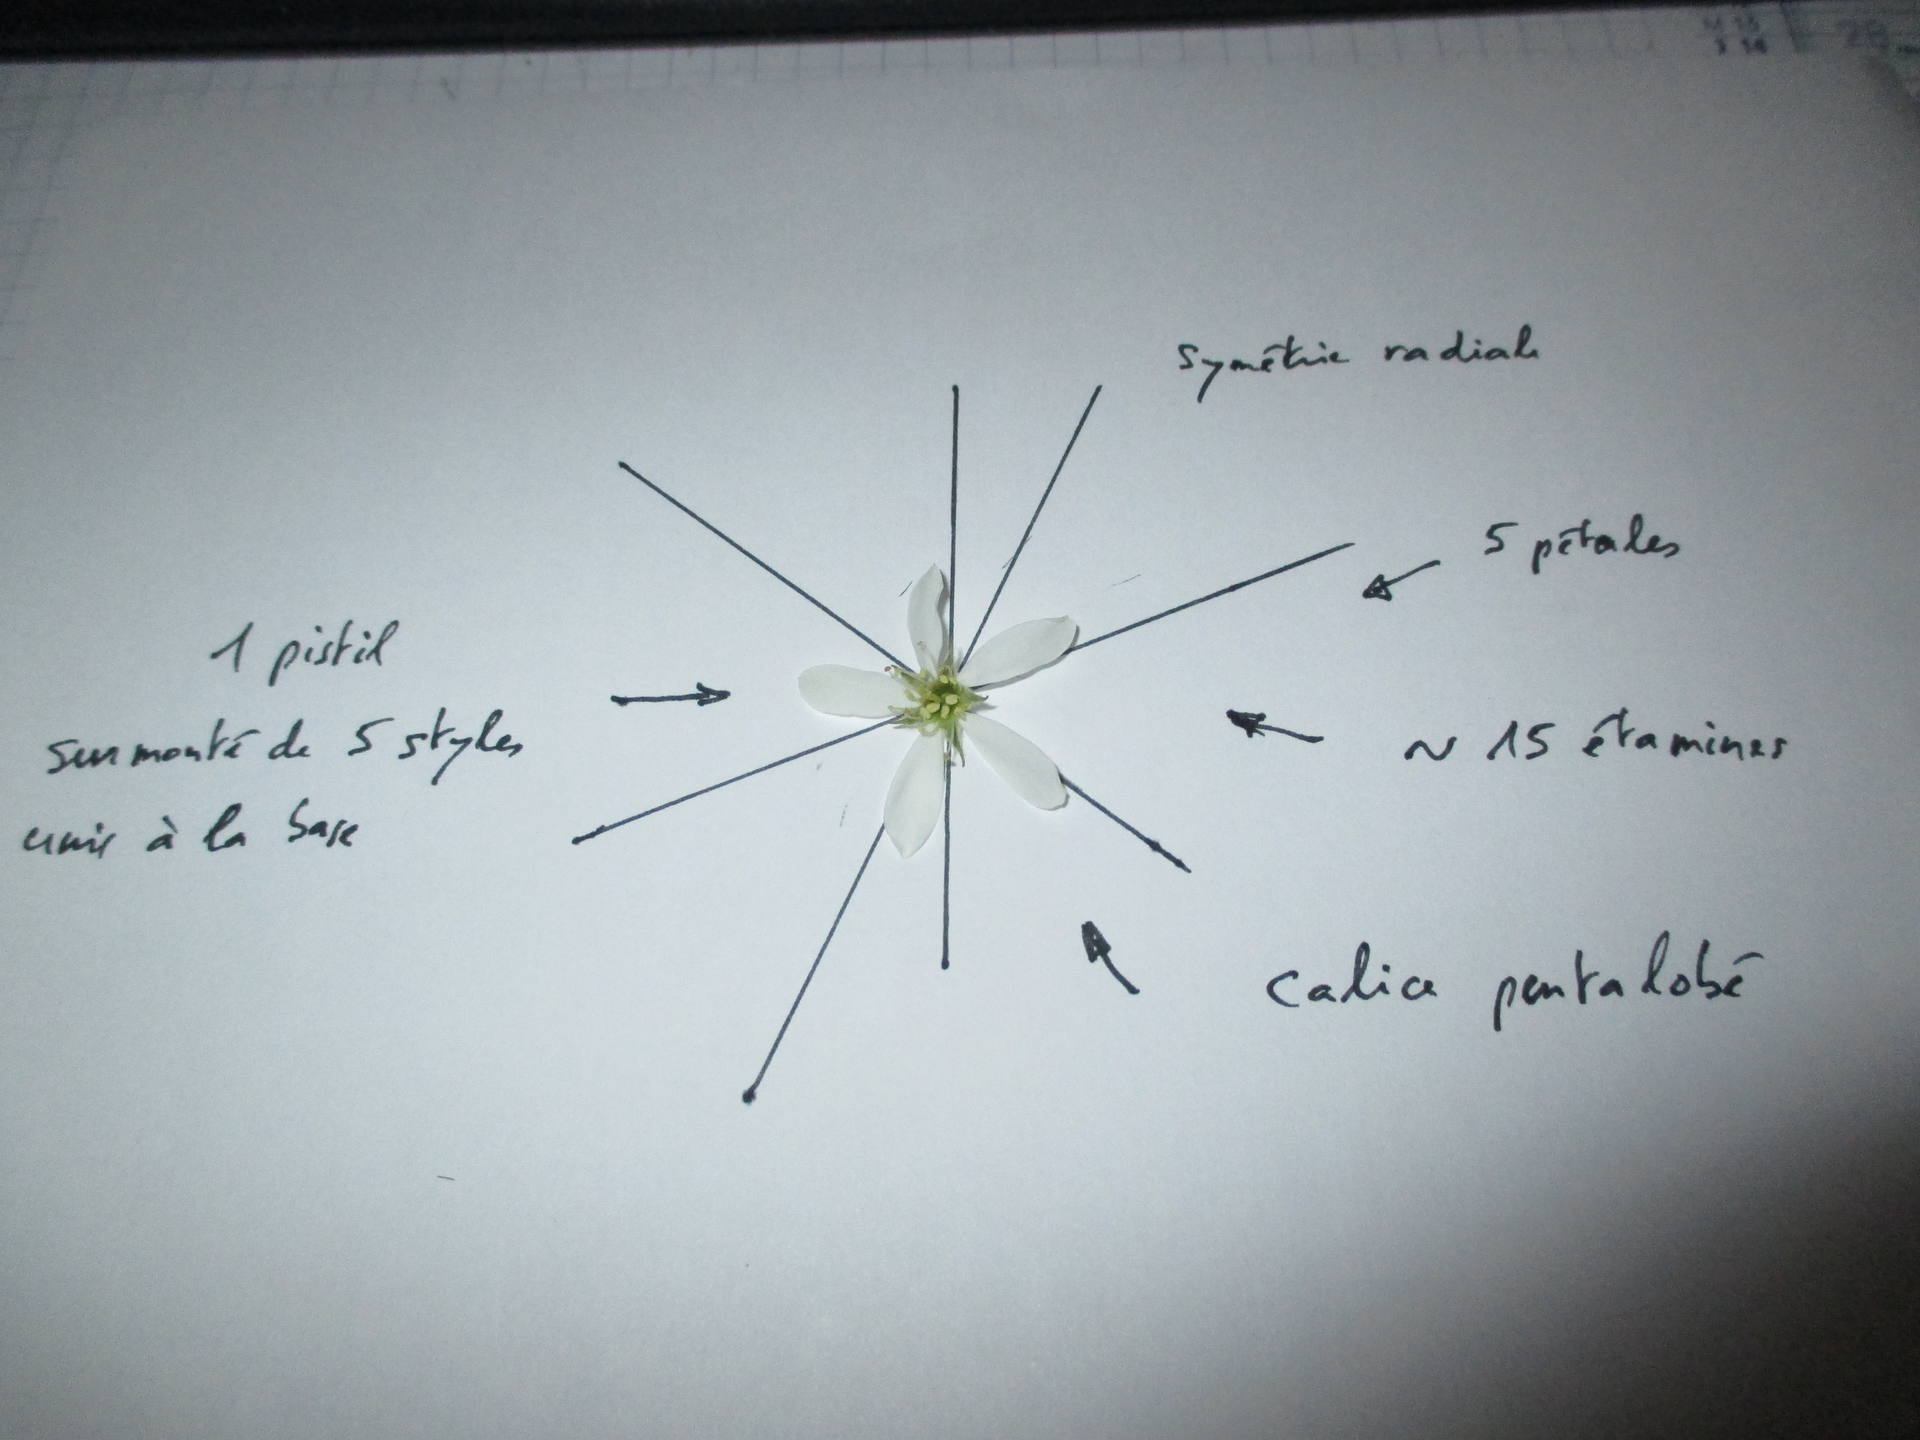 symétrie radiale
5 pétales
1 pistil
surmonté de 5 styles
unis à la base
~ 15 étamines
calice pentalobé